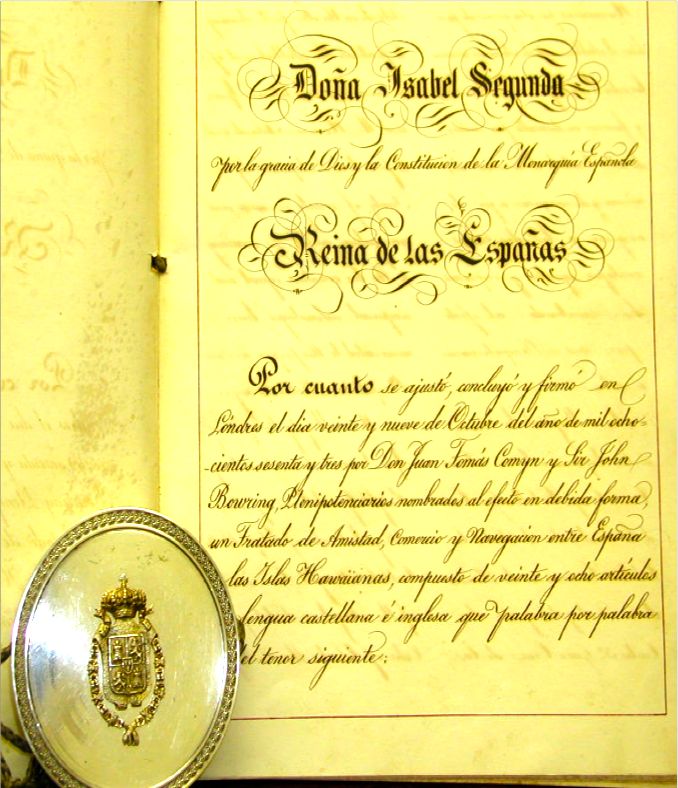 Doña Isabel Segunda
por la gracia de Dios y la Constitucion de la Monarquia Española
Reina de las Españas
Por cuanto se ajustó, concluyó y firmó en
Lóndres el dia veinte y nueve de Octubre del año de mil ocho-
-cientos sesenta y tres por Don Juan Tomás Comyn y Sir John
Bowring, Plenipotenciarios nombrados al efecto en debida forma,
un Tratado de Amistad, Comercio y Navegacion entre España
las Islas Hawaiianas, compuesto de veinte y ocho artículos
lengua castellana é inglesa que palabra por palabra
del tenor siguiente: